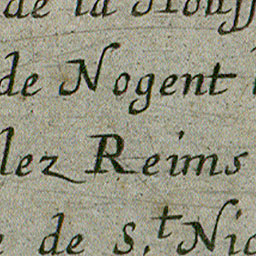 de la Houss
de Nogent
lez Reims
de S.t Nic